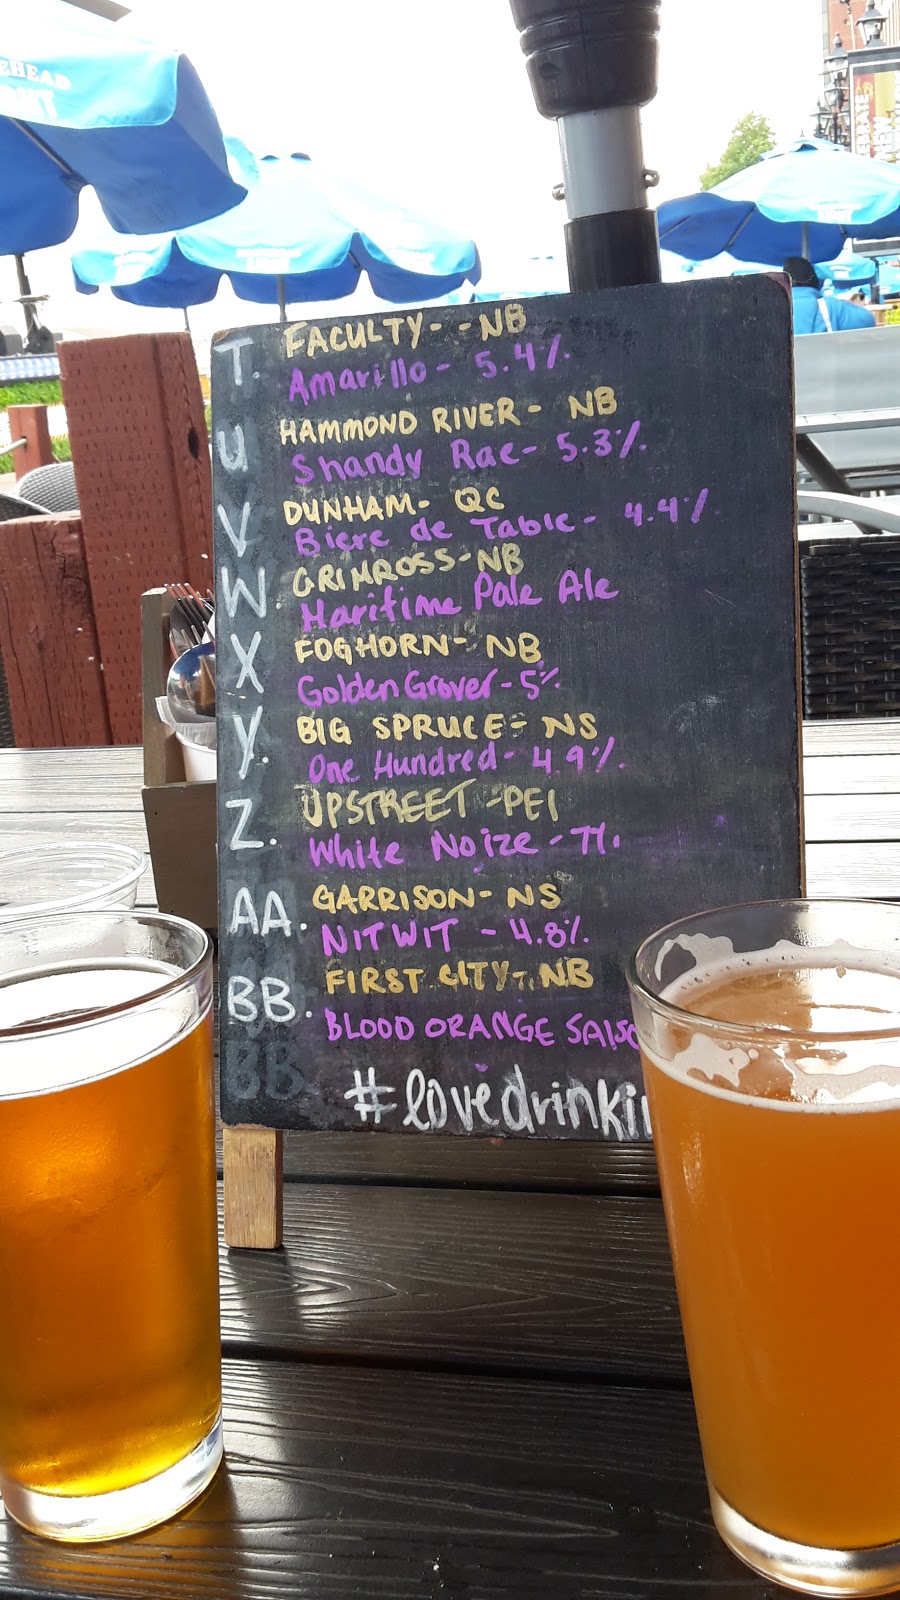 T. FACULTY- -NB
Amarillo- 5.4%.
U HAMMOND RIVER- NB
Shandy Rae- 5.3%.
V DUNHAM- QC
Biere de Table- 4.4%
W. GRIMROSS-NB
Maritime Pale Ale
X FOGHORN- NB
Golden Grover-5%.
Y. BIG SPRUCE- NS
One Hundred- 4.9%.
Z. UPSTREET-PEI
White Noize-7%.
AA. GARRISON- NS
NITWIT - 4.8%.
BB. FIRST CITY- NB
BLOOD ORANGE
BB